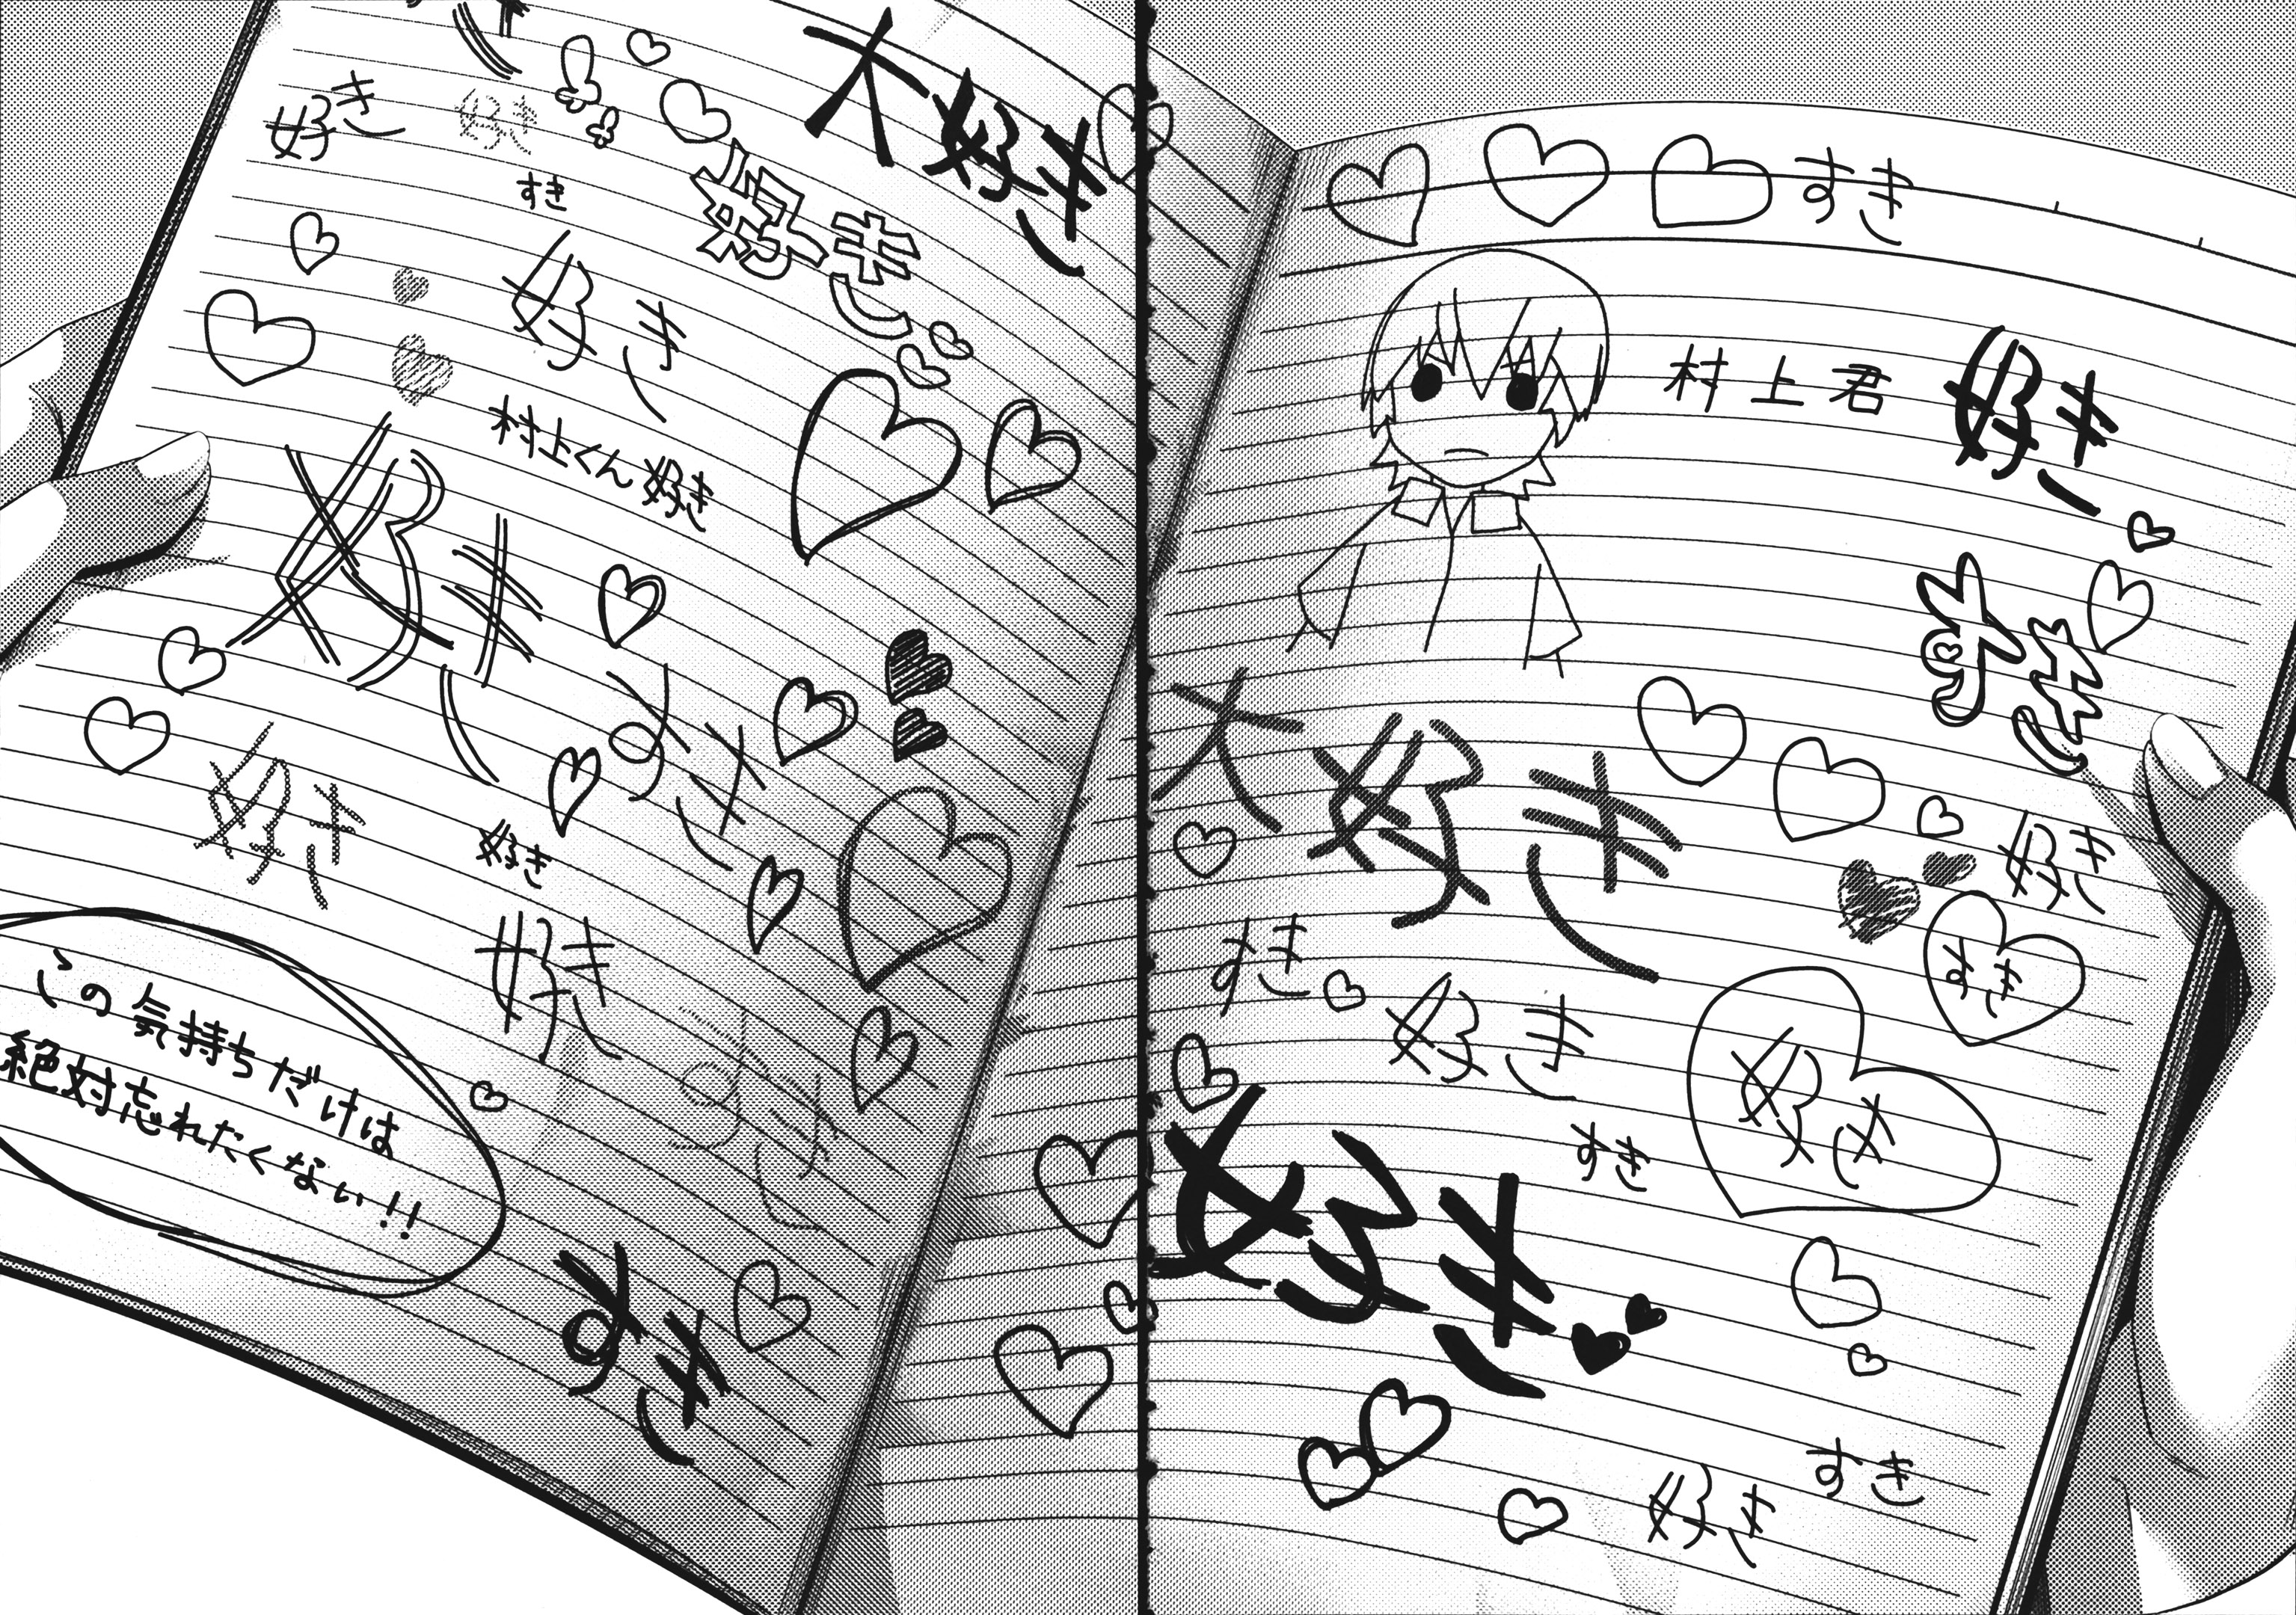 大好き
好き
好き
すき
好き
好き
村上くん好き
好き
すき
好き
好き
好き
すき
この気持ちだけは
絶対忘れたくない!!
すき
すき
村上君 好き
すき
大好き
好き
すき
すき
好き
好き
すき
好き
好き
すき